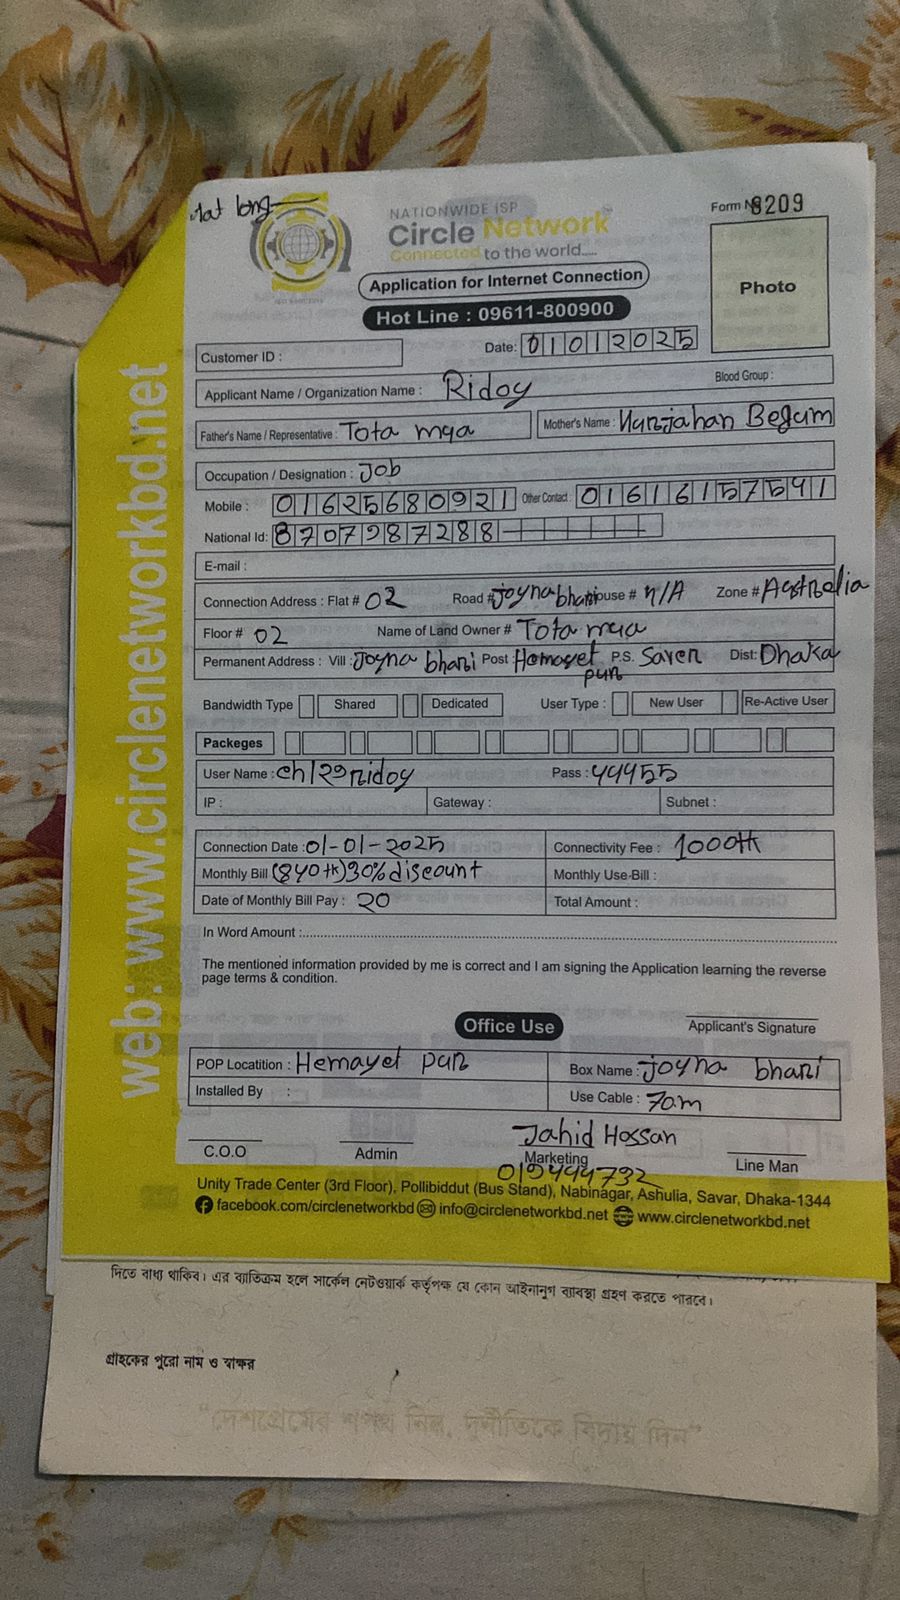 Lat long
NATIONWIDE ISP
Circle Network
Connected to the world.....
Form No 8209
Application for Internet Connection
Hot Line : 09611-800900
Photo
Date: 01012025
Customer ID :
Applicant Name / Organization Name : Ridoy Blood Group :
Father's Name / Representative : Tota mya Mother's Name : Nurjahan Begum
Occupation / Designation : Job
Mobile : 01625680921 Other Contact : 01616157541
National Id: 8707987288
E-mail :
Connection Address : Flat # 02 Road # Joyna bhari House # N/A Zone # Australia
Floor # 02 Name of Land Owner # Tota mya
Permanent Address : Vill : Joyna bhari Post Hemayet pur P.S. Saver Dist: Dhaka
Bandwidth Type Shared Dedicated User Type : New User Re-Active User
Packeges
User Name : ridoy Pass : 44455
IP : Gateway : Subnet :
Connection Date : 01-01-2025 Connectivity Fee : 1000tk
Monthly Bill (840tk) 30% discount Monthly Use-Bill :
Date of Monthly Bill Pay : 20 Total Amount :
In Word Amount :
The mentioned information provided by me is correct and I am signing the Application learning the reverse
page terms & condition.
Applicant's Signature
Office Use
POP Locatition : Hemayet pur Box Name : Joyna bhari
Installed By : Use Cable : 70m
Jahid Hossan
C.O.O Admin Marketing Line Man
Unity Trade Center (3rd Floor), Pollibiddut (Bus Stand), Nabinagar, Ashulia, Savar, Dhaka-1344
facebook.com/circlenetworkbd info@circlenetworkbd.net www.circlenetworkbd.net
web: www.circlenetworkbd.net
দিতে বাধ্য থাকিব। এর ব্যতিক্রম হলে সার্কেল নেটওয়ার্ক কর্তৃপক্ষ যে কোন আইনানুগ ব্যাবস্থা গ্রহণ করতে পারবে।
গ্রাহকের পুরো নাম ও স্বাক্ষর
“দেশপ্রেমের শপথ নিন, দুর্নীতিকে বিদায় দিন”